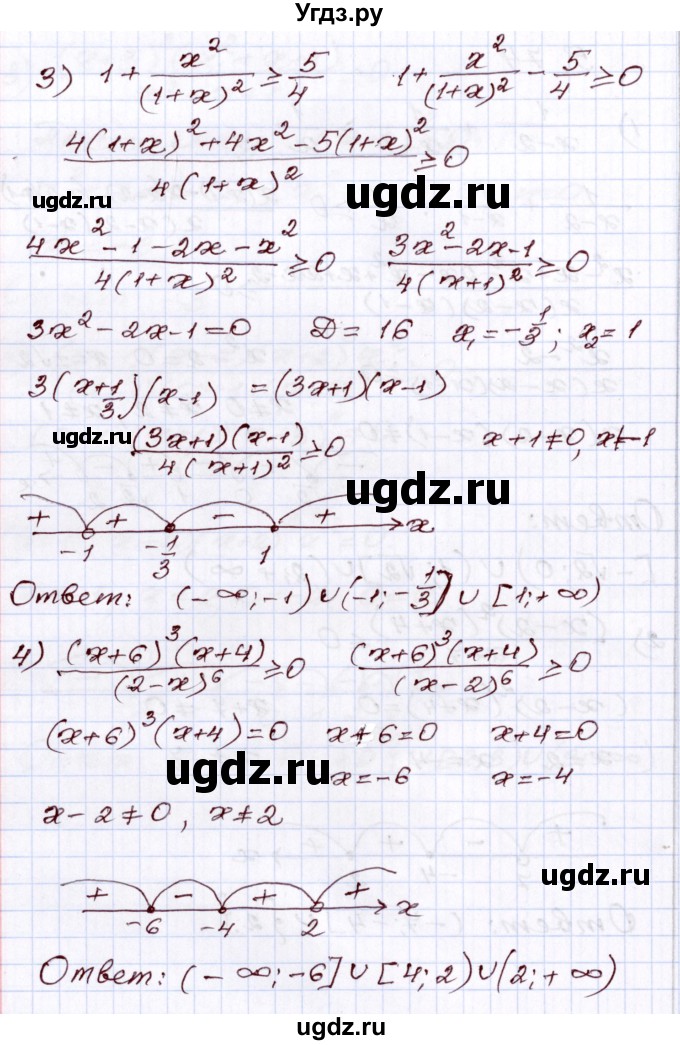 Угдз.ру
3) 1 + x²/(1+x)² ≥ 5/4    1 + x²/(1+x)² - 5/4 ≥ 0
(4(1+x)² + 4x² - 5(1+x)²)/(4(1+x)²) ≥ 0
ugdz.ru ugdz.ru
(4x² - 1 - 2x - x²)/(4(1+x)²) ≥ 0    (3x² - 2x - 1)/(4(x+1)²) ≥ 0
3x² - 2x - 1 = 0    D = 16    x₁ = -1/3; x₂ = 1
3(x + 1/3)(x-1) = (3x+1)(x-1)
ugdz.ru
((3x+1)(x-1))/(4(x+1)²) ≥ 0    x+1 ≠ 0, x ≠ -1
ugdz.ru
+ + - + x
-1 -1/3 1
Ответ: (-∞; -1) ∪ (-1; -1/3] ∪ [1; +∞)
ugdz.ru
4) ((x+6)³(x+4))/((2-x)⁶) ≥ 0    ((x+6)³(x+4))/((x-2)⁶) ≥ 0
(x+6)³(x+4) = 0    x+6 = 0    x+4 = 0
ugdz.ru
x = -6    x = -4
x - 2 ≠ 0, x ≠ 2
ugdz.ru
+ - + + x
-6 -4 2
Ответ: (-∞; -6] ∪ [4; 2) ∪ (2; +∞)
ugdz.ru
ugdz.ru